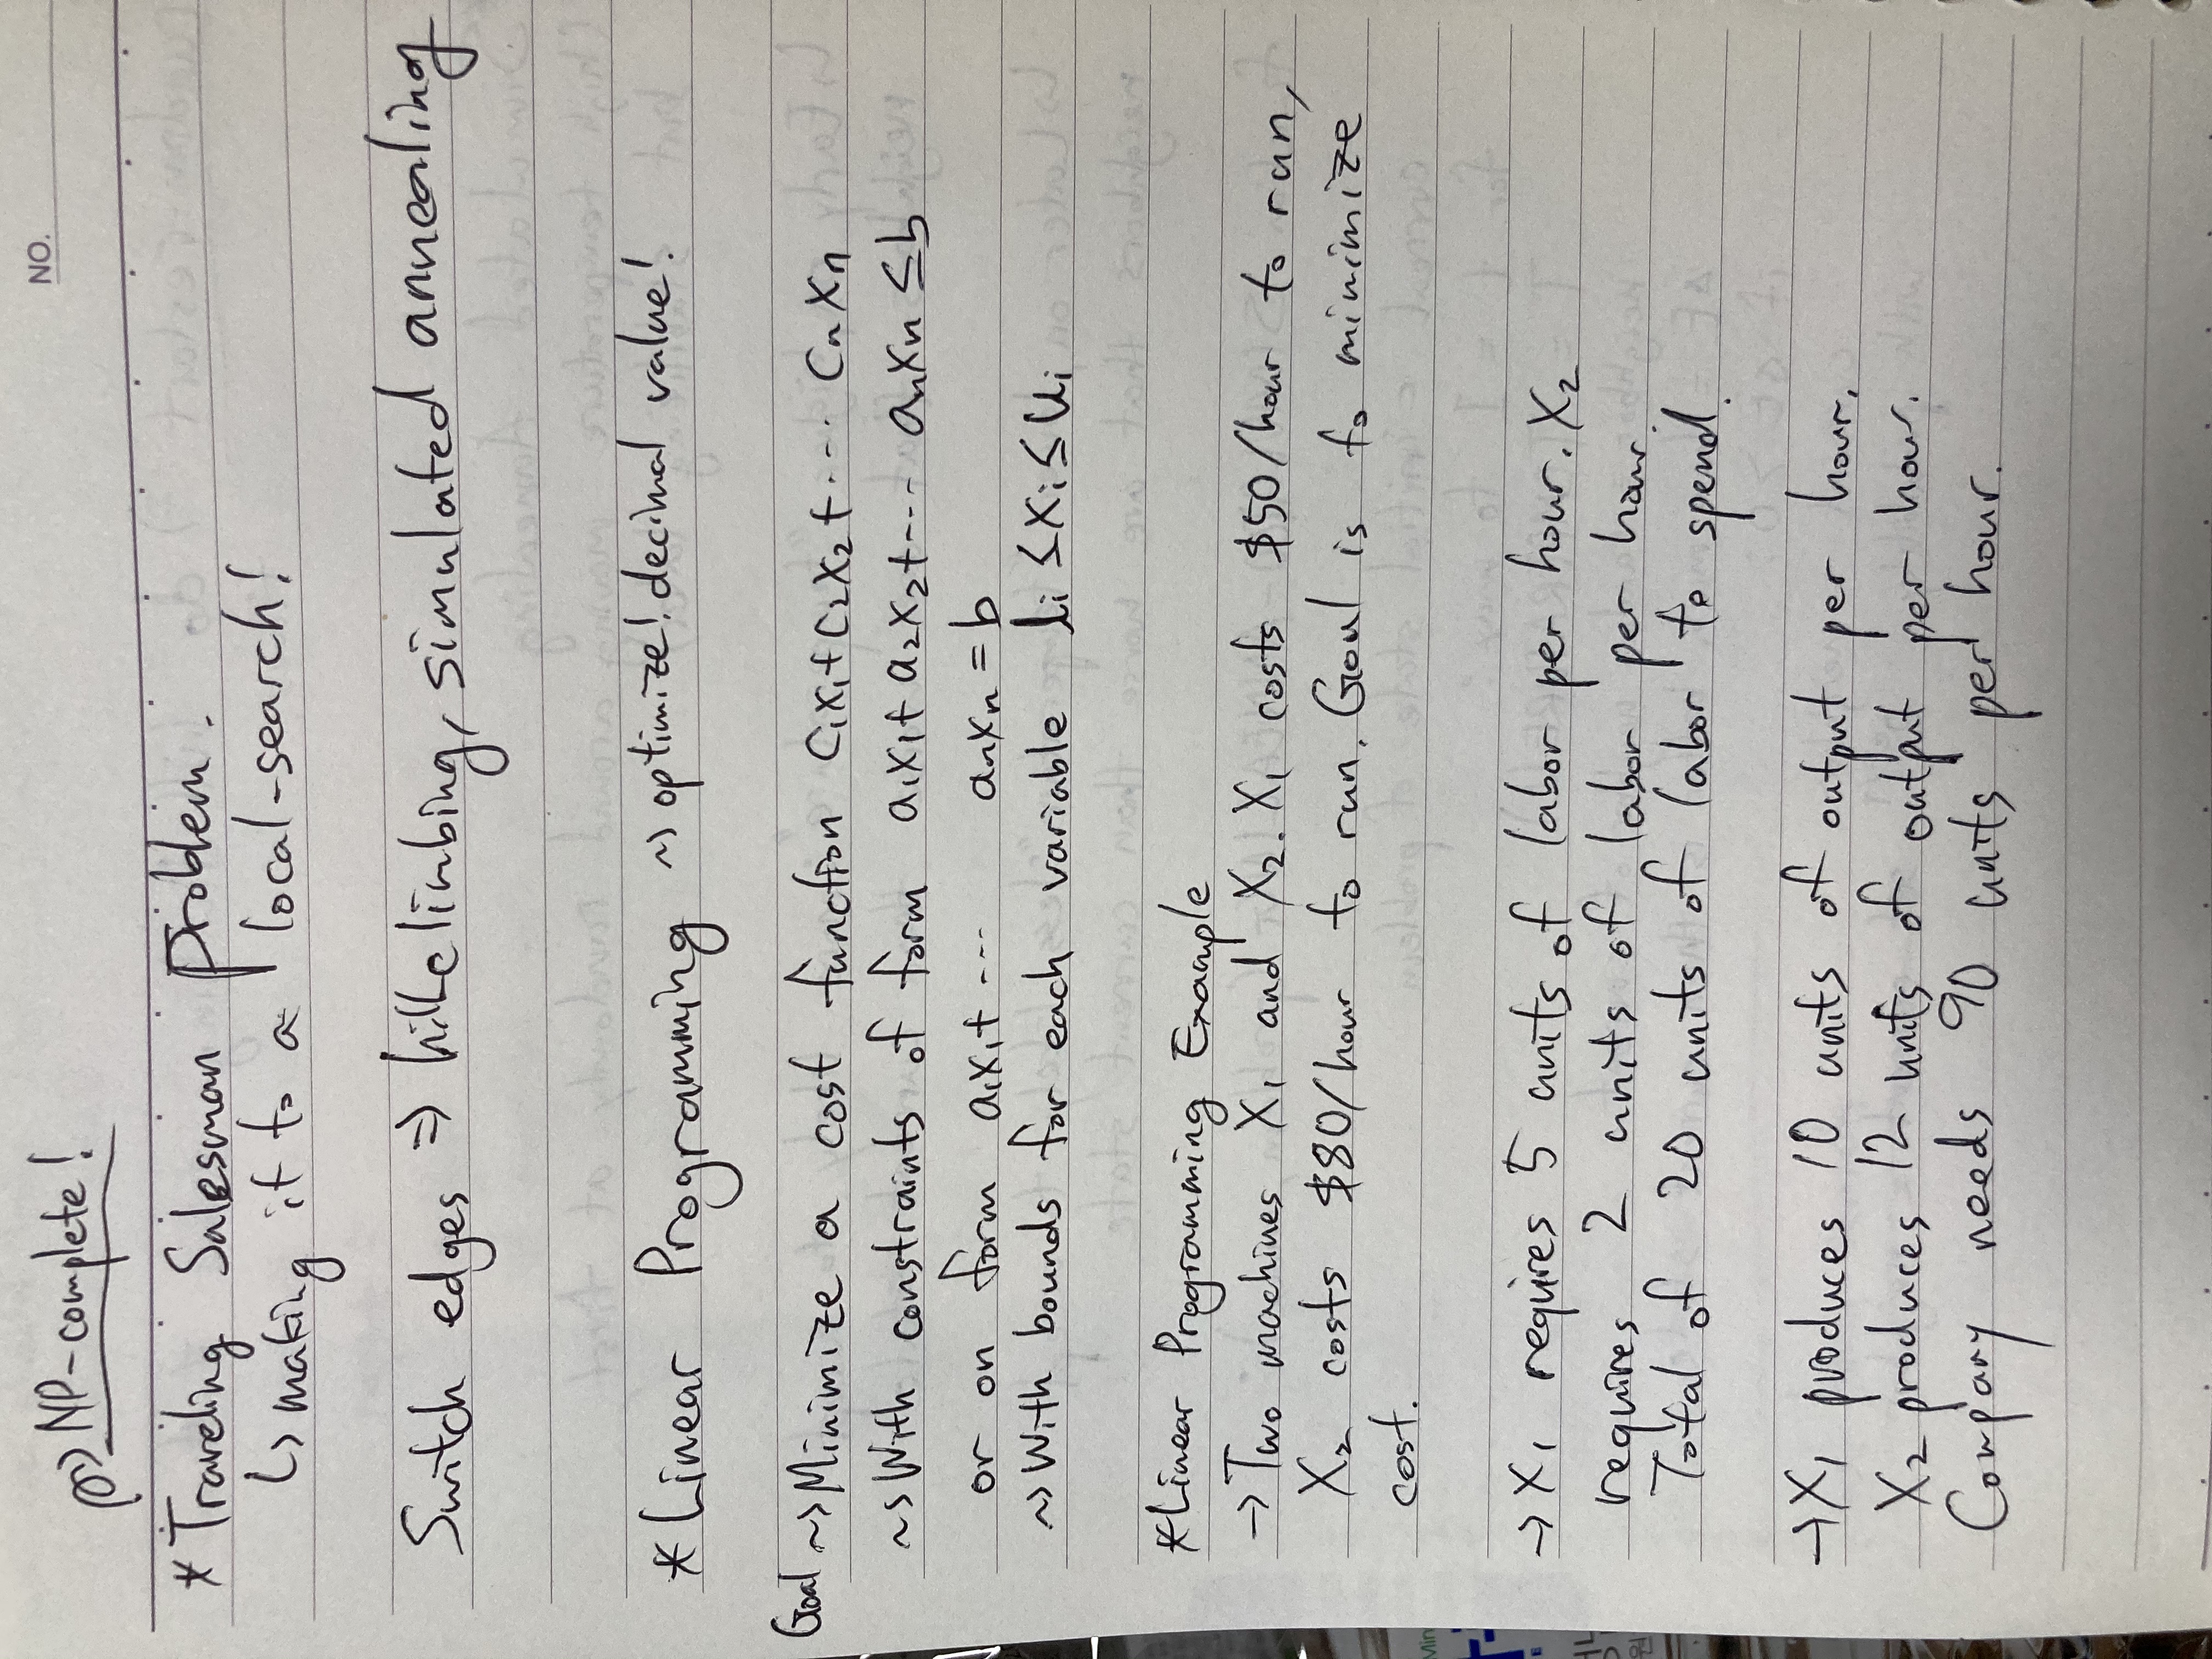 NO.
NP-complete!
* Traveling Salesman Problem.
↳ making it to a local-search!
Switch edges ⇒ hillclimbing, simulated annealing
* Linear Programming ~> optimize! decimal value!
Goal ~> Minimize a cost function C₁X₁+C₂X₂+··· CₙXₙ
~> With constraints of form a₁X₁+a₂X₂+--- aₙXₙ ≤b
or on form a₁X₁+--- aₙXₙ = b
~> With bounds for each variable li ≤Xi≤Ui
* Linear Programming Example
→ Two machines X₁ and X₂. X₁ costs $50/hour to run,
X₂ costs $80/hour to run. Goal is to minimize
cost.
→ X₁ requires 5 units of labor per hour. X₂
requires 2 units of labor per hour.
Total of 20 units of labor to spend.
→ X₁ produces 10 units of output per hour.
X₂ produces 12 units of output per hour.
Company needs 90 units per hour.